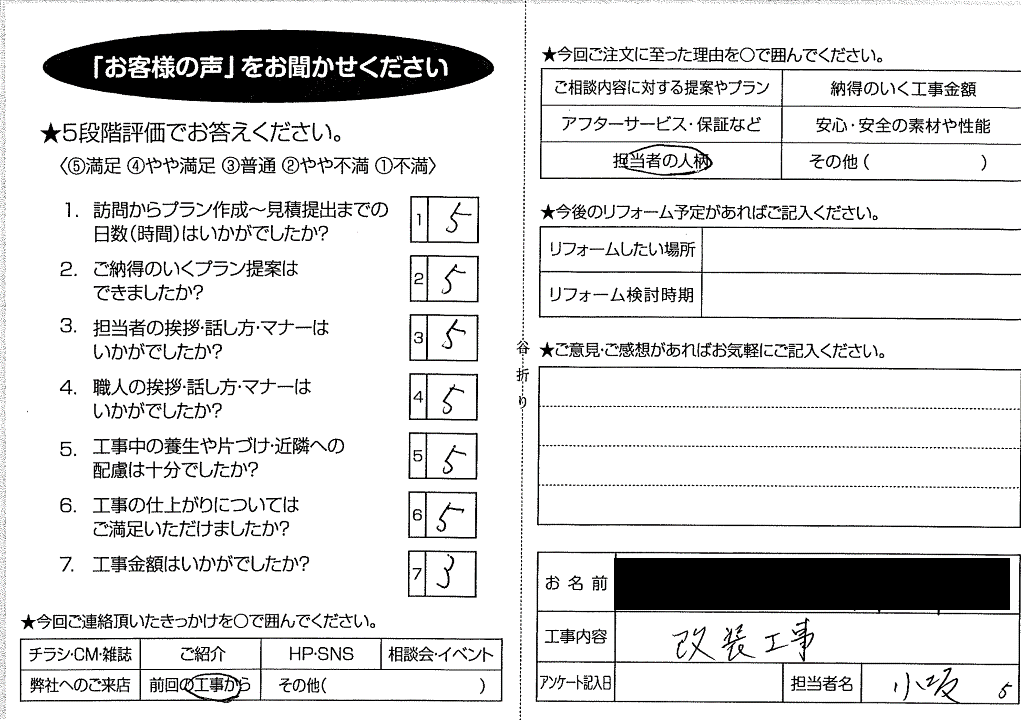 「お客様の声」をお聞かせください
★5段階評価でお答えください。
〈⑤満足 ④やや満足 ③普通 ②やや不満 ①不満〉
1. 訪問からプラン作成～見積提出までの
日数(時間)はいかがでしたか?
1 5
2. ご納得のいくプラン提案は
できましたか?
2 5
3. 担当者の挨拶・話し方・マナーは
いかがでしたか?
3 5
4. 職人の挨拶・話し方・マナーは
いかがでしたか?
4 5
5. 工事中の養生や片づけ・近隣への
配慮は十分でしたか?
5 5
6. 工事の仕上がりについては
ご満足いただけましたか?
6 5
7. 工事金額はいかがでしたか?
7 3
★今回ご連絡頂いたきっかけを○で囲んでください。
チラシ・CM・雑誌 ご紹介 HP・SNS 相談会・イベント
弊社へのご来店 前回の工事から その他( )
谷折り
★今回ご注文に至った理由を○で囲んでください。
ご相談内容に対する提案やプラン 納得のいく工事金額
アフターサービス・保証など 安心・安全の素材や性能
担当者の人柄 その他( )
★今後のリフォーム予定があればご記入ください。
リフォームしたい場所
リフォーム検討時期
★ご意見・ご感想があればお気軽にご記入ください。
お名前
工事内容 改装工事
アンケート記入日 担当者名 小坂 5